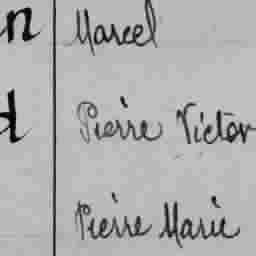 n Marcel
d Pierre Victor
Pierre Marie